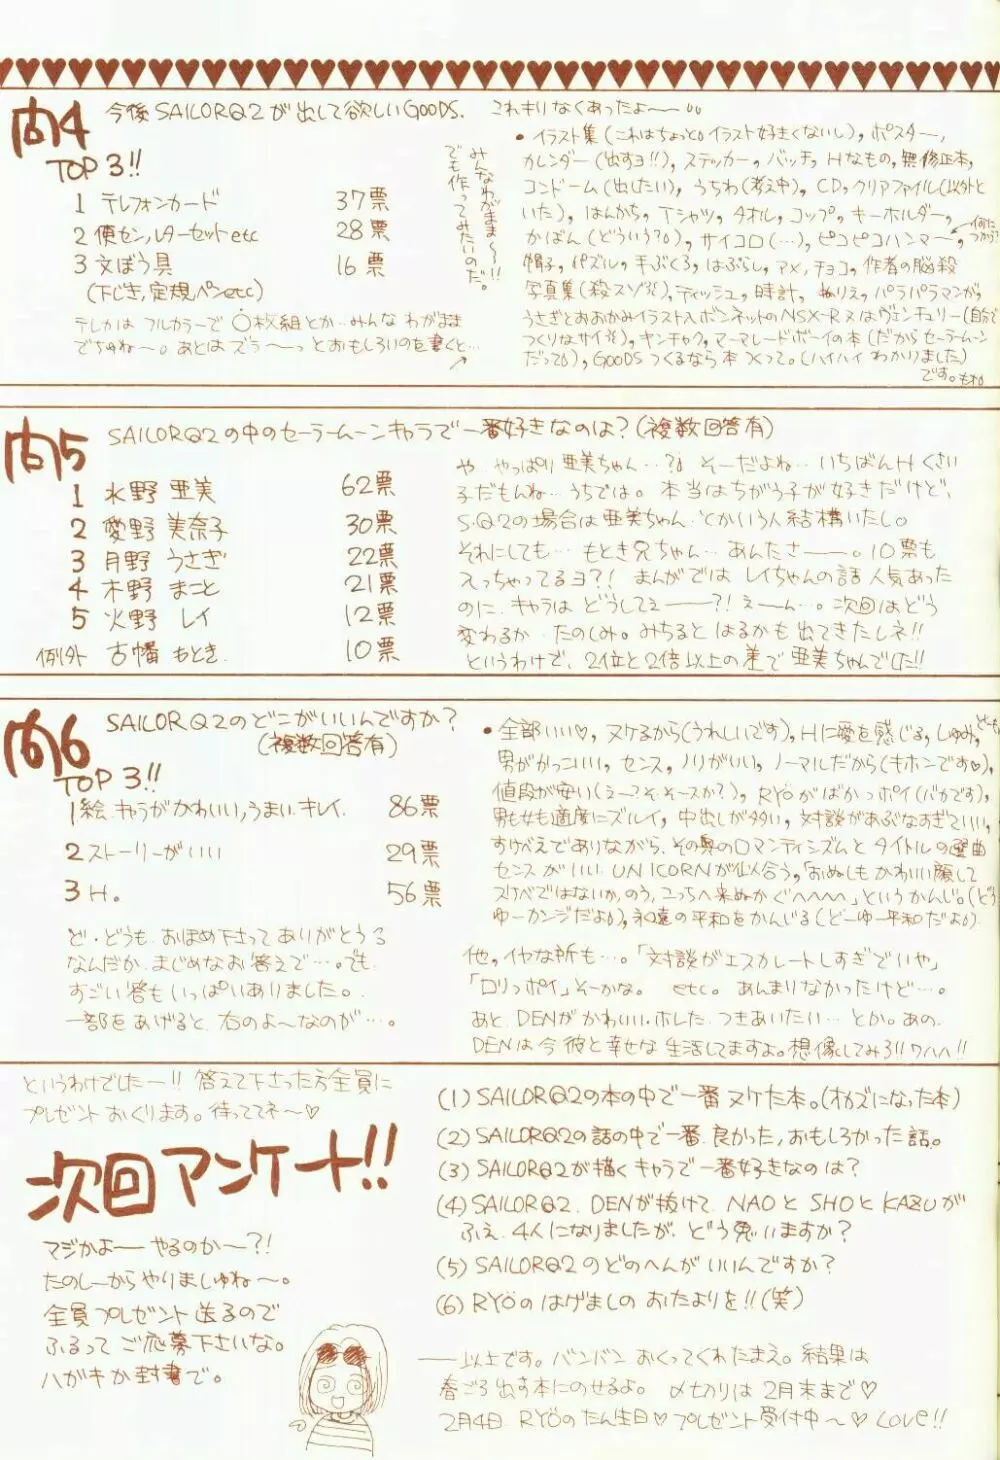 問4 今後SAILORQ2が出して欲しいGOODS.
TOP 3!!
1 テレフォンカード 37票
2 便セン,レターセットetc 28票
3 文ぼう具 16票
(下じき,定規,ペンetc)
みんなわがまま〜!!
でも作ってみたいのだ。
テレカは フルカラーで ○枚組とか…みんな わがまま
でちゅね〜。あとはズラ〜〜っとおもしろいのを書くと…
これキリなくあったよ〜〜
• イラスト集(これはちょっと。イラスト好きくないし), ポスター,
カレンダー(出すヨ!!), ステッカー, バッチ, Hなもの, 無修正本,
コンドーム(出したい), うちわ(考え中), CD, クリアファイル(以外と
いた), はんかち, Tシャツ, タオル, コップ, キーホルダー,
かばん(どういう?), サイコロ(…), ピコピコハンマー, 何に
つかう?
帽子, パズル, 手ぶくろ, はぶらし, アメ, チョコ, 作者の脳殺
写真集(殺スゾ), ティッシュ, 時計, ぬりえ, パラパラマンガ,
うさぎとおおかみイラスト入ボンネットのNSX-R又はヴェンチュリー(自分で
つくりなサイ), キンチャク, マーマレードボーイの本(だからセーラームーン
だって), GOODSつくるなら本つくって。(ハイハイ わかりました)
です。
問5 SAILORQ2の中のセーラームーンキャラで一番好きなのは?(複数回答有)
1 水野 亜美 62票
2 愛野 美奈子 30票
3 月野 うさぎ 22票
4 木野 まこと 21票
5 火野 レイ 12票
例外 古幡 もとき. 10票
や やっぱり 亜美ちゃん…? そーだよね… いちばんHくさい
子だもんね… うちでは。本当はちがう子が好きだけど、
S.Q2の場合は亜美ちゃん とかいう人 結構いたし。
それにしても… もとき兄ちゃん… あんたさ――。10票も
入っちゃってるヨ?! まんがでは レイちゃんの話 人気あった
のに キャラは どうしてえ――?! えーん…。次回はどう
変わるか たのしみ。みちると はるかも出てきたしネ!!
というわけで、2位と2倍以上の差で 亜美ちゃんでした!!
問6 SAILORQ2のどこがいいんですか?
(複数回答有)
TOP 3!!
1 絵.キャラがかわいい,うまい.キレイ. 86票
2 ストーリーがいい 29票
3 H。 56票
ど・どうも.おほめ下さってありがとうる
なんだか まじめなお答えで…。でも
すごい答もいっぱいありました。
一部をあげると 右のよ〜なのが…。
• 全部いい♡, ヌケるから(うれしいです), Hに愛を感じる, しゅみ,
男がかっこいい, センス, ノリがいい, ノーマルだから(キホンです♡),
値段が安い(えー?そ.そースか?), RYÖがばかっポイ(バカです),
男も女も適度にズルイ, 中出しが多い, 対談があぶなすぎていい,
すけべえでありながら, その奥のロマンティシズムと タイトルの選曲
センスがいい. UNICORNが似合う,「おぬしも かわいい顔して
スケベではないか,のう,こっちへ来ぬかぐへへへへ」というかんじ。(どう
ゆーカンジだよ), 永遠の平和をかんじる(どーゆー平和だよ)
他,イヤな所も…。「対談がエスカレートしすぎでいや」
「ロリっポイ」そーかな。 etc. あんまりなかったけど…。
あと DENがかわいい.ホレた.つきあいたい… とか。あの.
DENは今 彼と幸せな 生活してますよ。想像してみろ!!ワハハ!!
というわけでしたー!! 答えて下さった方全員に
プレゼント おくります。待っててネ〜♡
次回アンケート!!
マジかよ―やるのか〜?!
たのしーからやりましゅね〜。
全員プレゼント送るので
ふるって ご応募下さいな。
ハガキか封書で。
(1) SAILORQ2の本の中で一番ヌケた本。(オカズになった本)
(2) SAILORQ2の話の中で一番 良かった,おもしろかった話。
(3) SAILORQ2が描くキャラで一番好きなのは?
(4) SAILORQ2. DENが抜けて NAOと SHOと KAZUが
ふえ 4人になりましたが どう思いますか?
(5) SAILORQ2のどのへんがいいんですか?
(6) RYÖのはげましの おたよりを!!(笑)
――以上です。バンバン おくってくれたまえ。結果は
春ごろ出す本にのせるよ。 〆切りは 2月末まで♡
2月4日 RYÖのたん生日♡ プレゼント受付中〜♡ Love!!